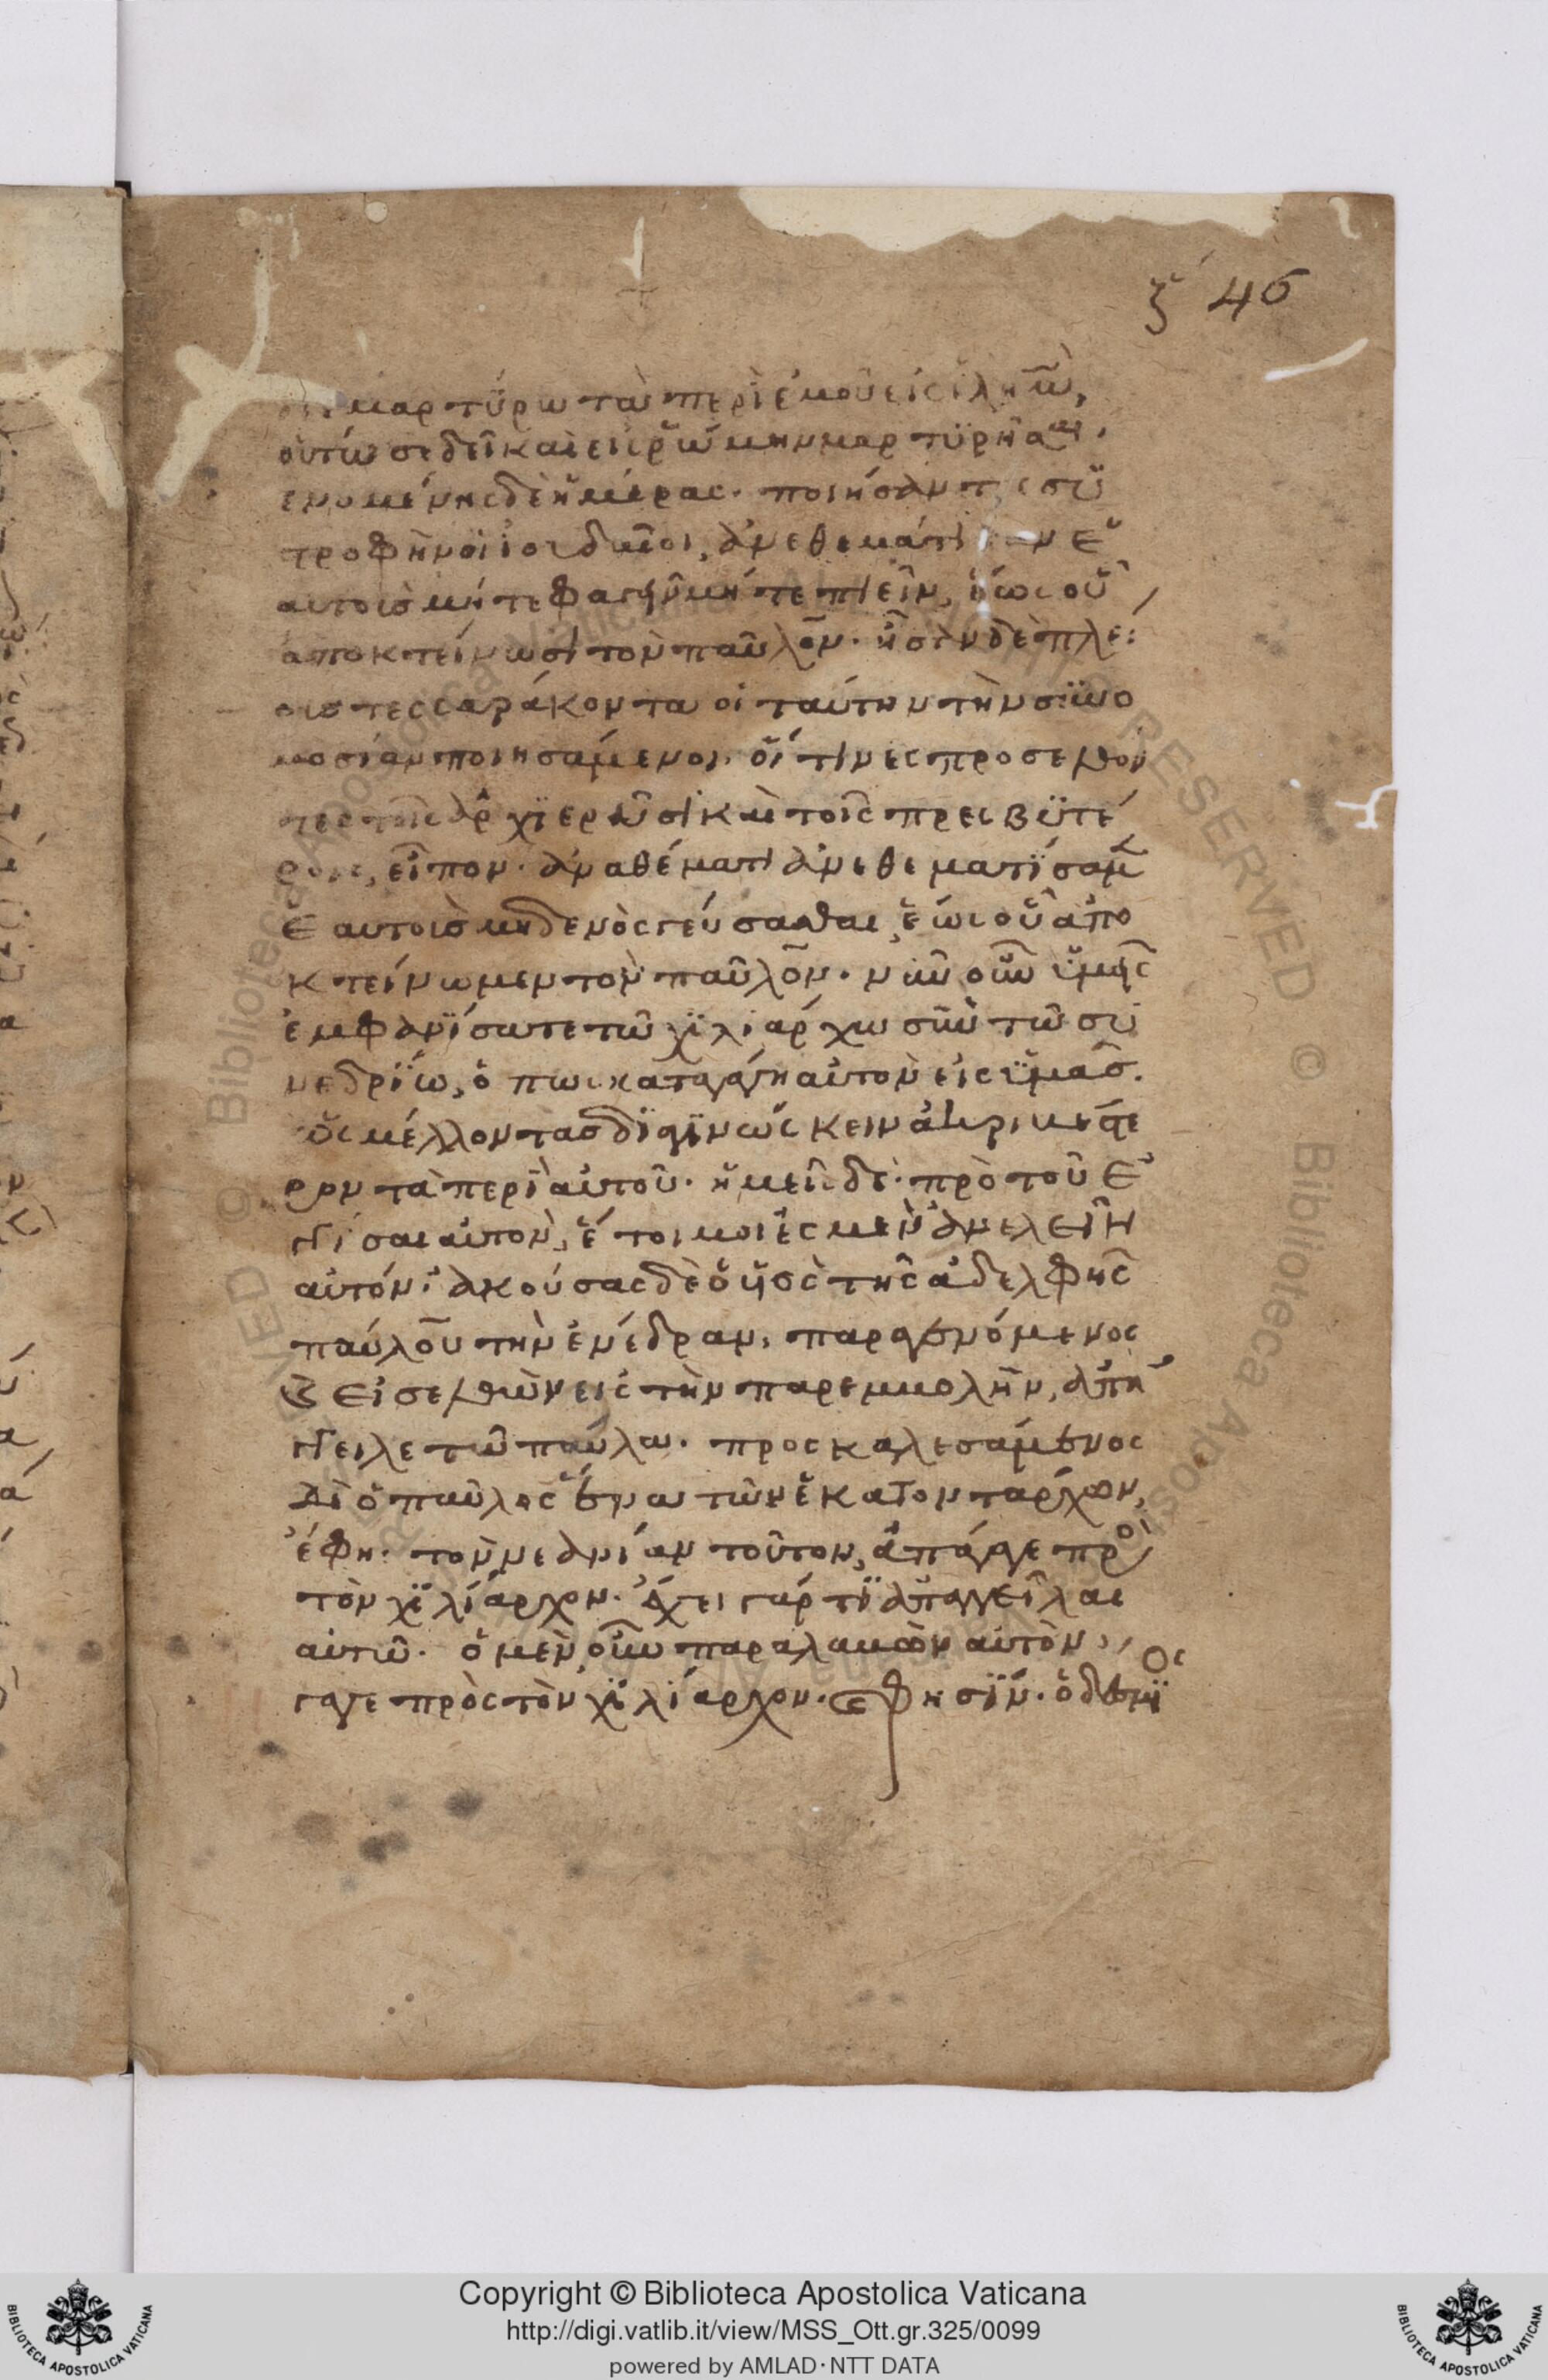 ξ´ 46
μαρτύρω τὰ περὶ ἐμοῦ εἰς ἱλὴμ̄,
οὕτω σε δεῖ καὶ εἰς ῥώμην μαρτϋρῆσαι.
γενομένης δὲ ἡμέρας. ποιήσαντες συ
στροφὴν οἱ ἰουδαῖοι, ἀνεθεμάτισαν ἑ
αυτοὺς μήτε φαγεῖν μήτε πιεῖν, ἕως οὗ
ἀποκτείνωσι τὸν παῦλον. ἦσαν δὲ πλεί
ους τεσσαράκοντα οἱ ταύτην τὴν συνο
μοσίαν ποιησάμενοι. οἵτινες προσελθόν
τες τοῖς ἀρχιερεῦσι καὶ τοῖς πρεσβϋτέ
ροις, εἶπον. ἀναθέματι ἀνεθεματίσαμεν
ἑαυτοὺς μηδενὸς γεύσασθαι, ἕως οὗ ἀπο
κτείνωμεν τὸν παῦλον. νῦν οὖν ὑμεῖς
ἐμφανίσατε τῶ χιλιάρχω σὺν τῶ συ
νεδρίω, ὅπως καταγάγη αὐτὸν εἰς ὑμᾶς.
ὡς μέλλοντας διαγινώσκειν ἀκριβέστε
ρον τὰ περὶ αὐτοῦ. ἡμεῖς δὲ πρὸ τοῦ ἐγ
γίσαι αὐτὸν, ἕτοιμοι ἐσμὲν ἀνελεῖν
αὐτόν. ἀκούσας δὲ ὁ υἱὸς τῆς ἀδελφῆς
παύλου τὴν ἐνέδραν, παραγενόμενος
καὶ εἰσελθὼν εἰς τὴν παρεμβολὴν, ἀπή
γγειλε τῶ παύλω. προσκαλεσάμενος
δὲ ὁ παῦλος ἕνα τῶν ἑκατοντάρχων,
ἔφη. τὸν νεανίαν τοῦτον, ἀπάγαγε πρὸς
τὸν χιλίαρχον. ἔχει γάρ τι ἀπαγγεῖλαι
αὐτῶ. ὁ μὲν οὖν παραλαβὼν αὐτὸν, ἤ
γαγε πρὸς τὸν χιλίαρχον. καὶ φησίν. ὁ δέσμιος
Copyright © Biblioteca Apostolica Vaticana
http://digi.vatlib.it/view/MSS_Ott.gr.325/0099
powered by AMLAD·NTT DATA